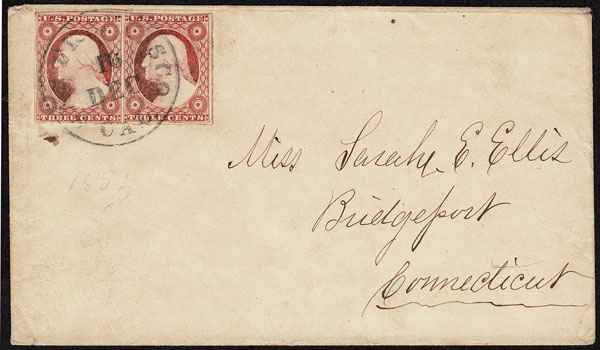 U.S. POSTAGE U.S. POSTAGE
THREE CENTS THREE CENTS
16
DEC
CAL
Miss Sarah E. Ellis
Bridgeport
Connecticut